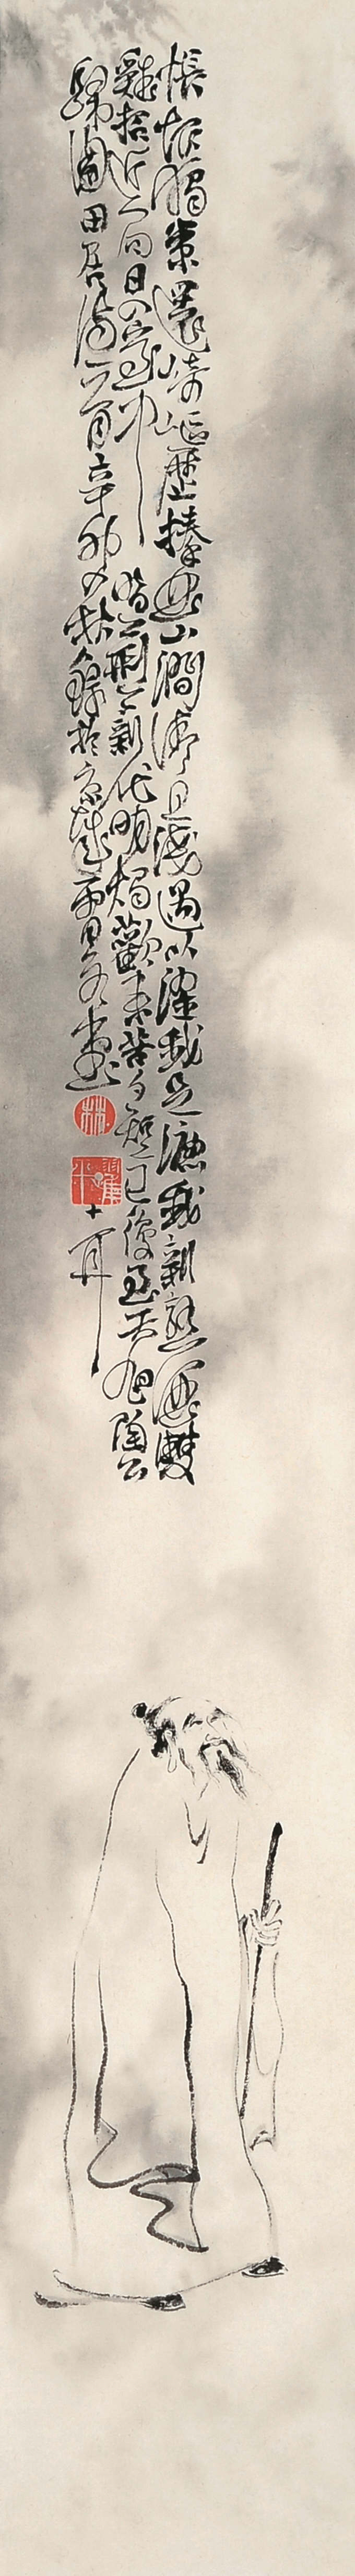 悵恨獨策還崎嶇歷榛曲山澗清且淺遇以濯我足漉我新熟酒雙
雞招近局日入室中暗荊薪代明燭歡來苦夕短已復至天旭陶公
歸園田居詩一首辛卯